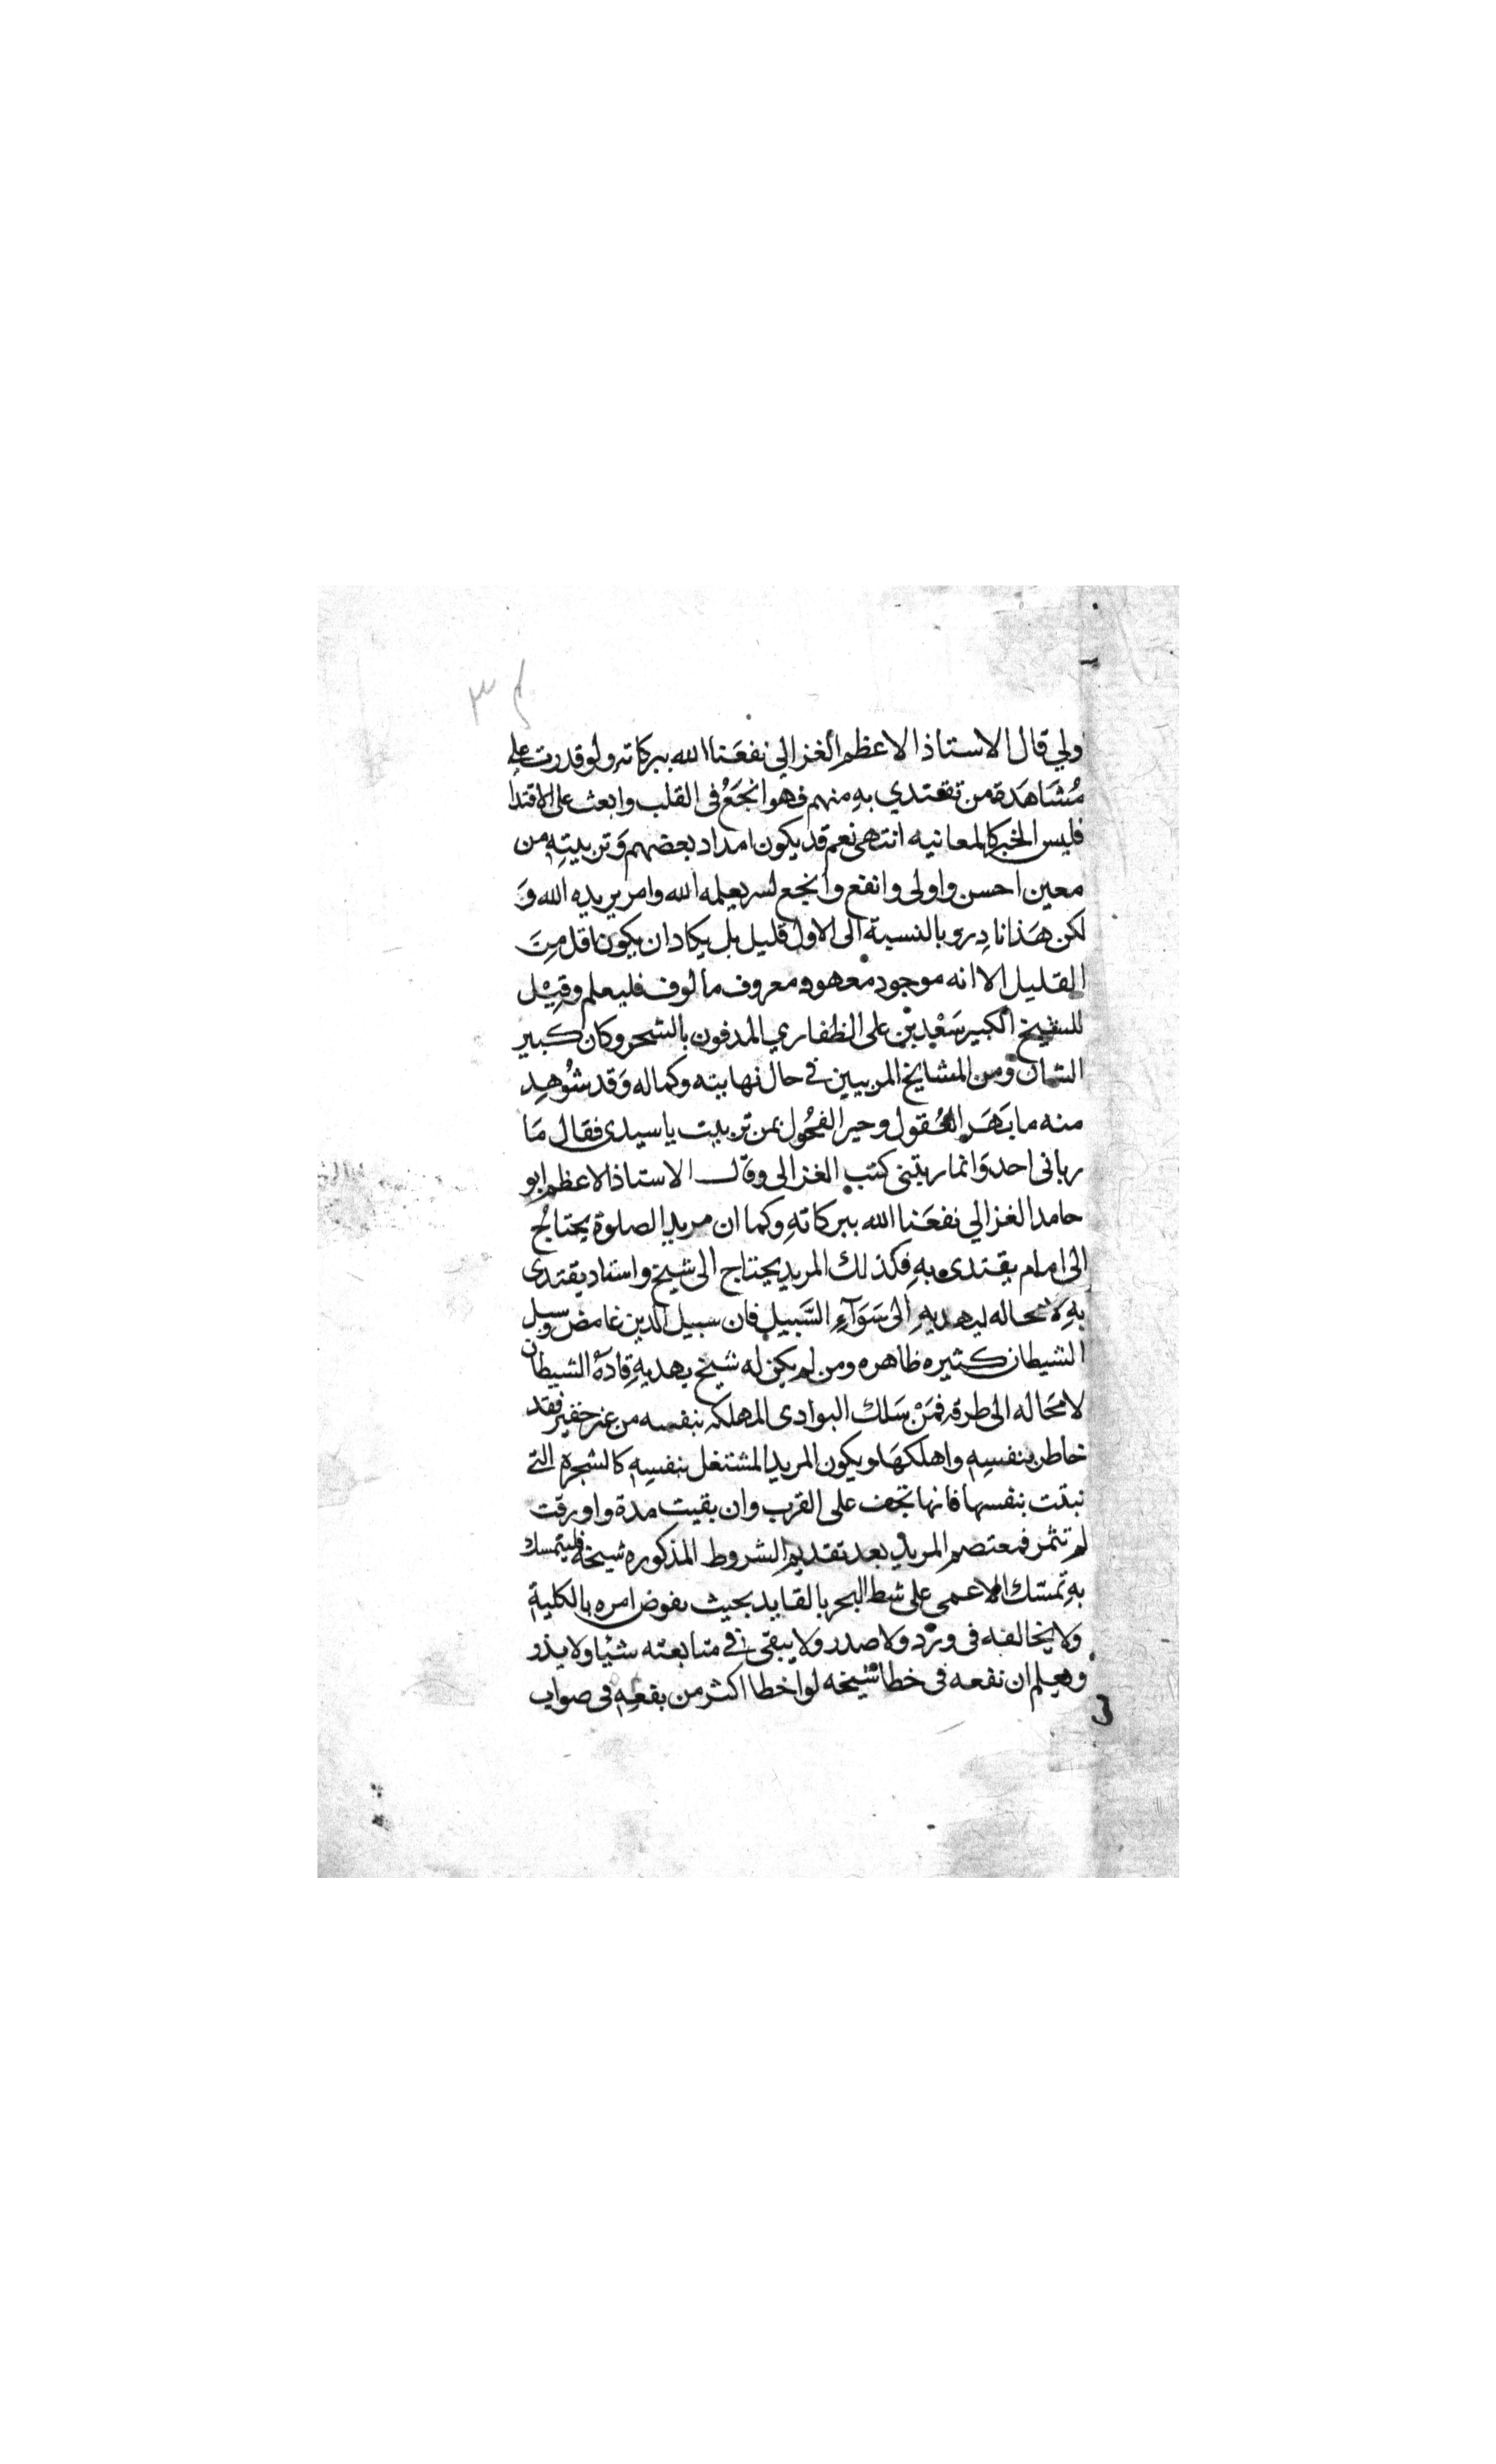 ٣٤
ولي قال الاستاذ الاعظم الغزالي نفعَنا الله ببركاته ولو قدرت على
مُشَاهَدة من تقتدي بهِ منهم فهو انجَعُ فى القلب وابعث على الاقتدا
فليس الخبر كالمعانيه انتهى نعم قد يكون امداد بعضهم وَتربيتهِ من
معين احسن واولى وانفع وانجع لسر يعلمه الله وامر يريده الله وَ
لكن هَذا نادِر وبالنسبة الى الاول قليل بل يكاد ان يكون اقل مِنَ
القليل الا انه موجود معهود معروف مالوف فليعلم وقِيْل
للشيخ الكبير سَعْد بن على الظفاري المدفون بالشحر وكان كبير
الشان ومن المشايخ المربيين في حال نهايته وكماله وَقد شُوهِد
منه ما بَهَرَ العُقول وحير الفحُول بمن تربيت يا سيدى فقال مَا
ربانى احد وَانما ربتنى كتب الغزالى وقال الاستاذ الاعظم ابو
حامد الغزالي نفعَنا الله ببركاتهِ وكما ان مريد الصلوة يحتاج
الى امام يقتدى بهِ فكذلك المريد يحتاج الى شيخ واستاد يقتدى
بهِ لا محاله ليهديهِ الى سَوَآءِ السَّبيل فان سبيل الدين غامض وسبل
الشيطان كثيره ظاهره ومن لم يكن له شيخ يهديهِ قادَهُ الشيطان
لا محَاله الى طرقه فمَنْ سَلك البوادى المهلكه بنفسه من غير خفير فقد
خاطر بنفسِهِ واهلكهَا ويكون المريد المشتغل بنفسِهِ كالشجرة التي
نبتت بنفسها فانها تجف على القرب وان بقيت مدة واورقت
لم تثمر فمعتصم المريد بعد تقديم الشروط المذكوره شيخه فليتمسك
بهِ تمسّك الاعمى على شط البحر بالقايد بحيث يفوض امره بالكلية
وَلا يخالفه فى وِرْد ولا صدر ولا يبقى في متابعته شيًا ولا يذر
وليعلم ان نفعه فى خطا شيخه لو اخطا اكثر من نفعهِ فى صواب